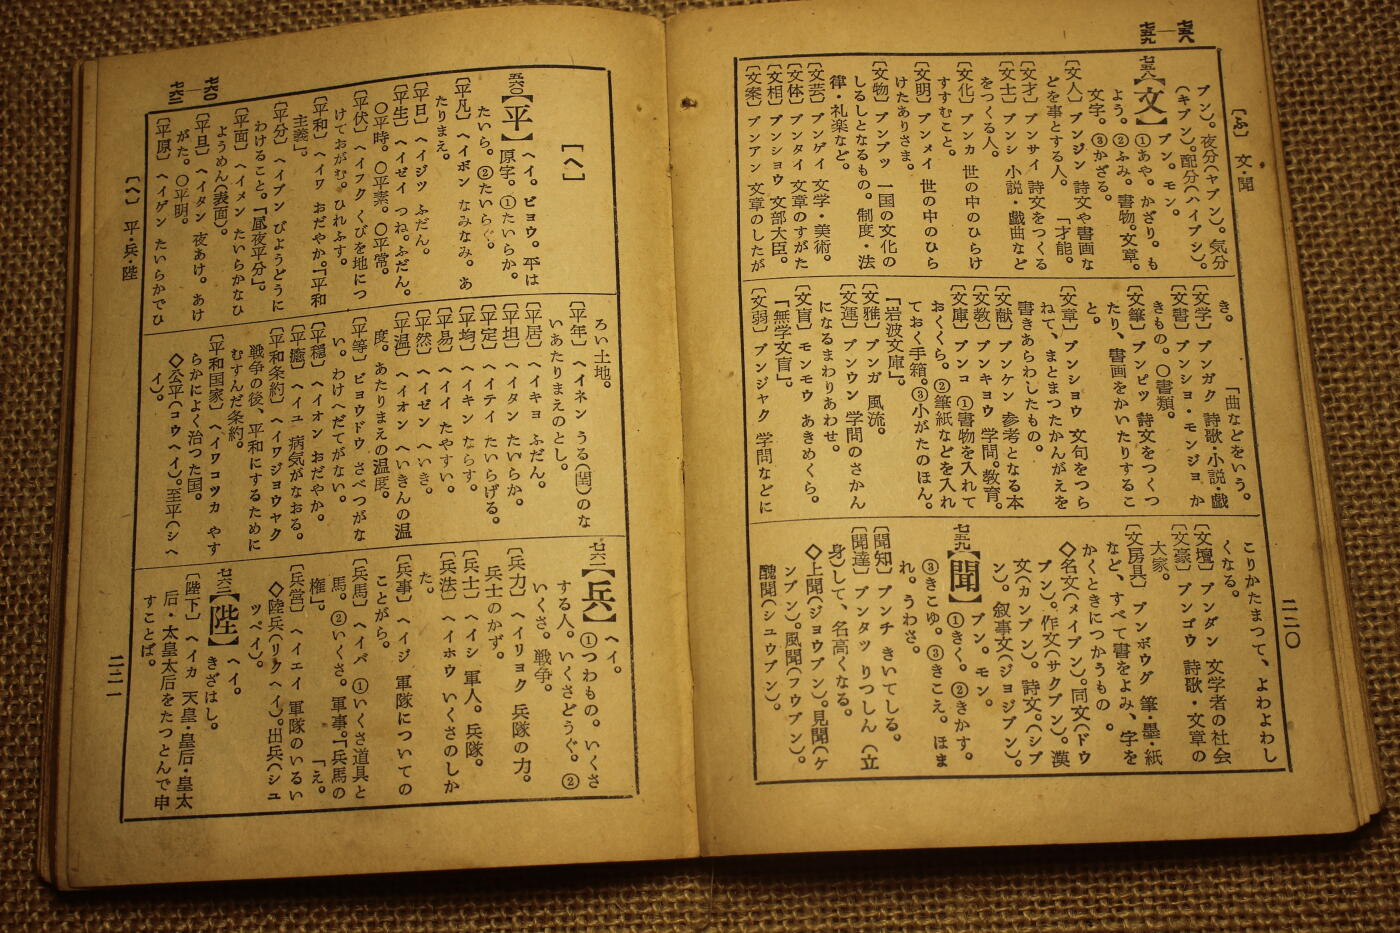 七五八―七五九
〔ふ〕 文・聞
ブン)。夜分(ヤブン)。気分
(キブン)。配分(ハイブン)。
七五八【文】 ブン。モン。
①あや。かざり。も
よう。②ふみ。書物。文章。
文字。③かざる。
〔文人〕 ブンジン 詩文や書画な
どを事とする人。 「才能。
〔文才〕 ブンサイ 詩文をつくる
〔文士〕 ブンシ 小説・戯曲など
をつくる人。
〔文化〕 ブンカ 世の中のひらけ
すすむこと。
〔文明〕 ブンメイ 世の中のひら
けたありさま。
〔文物〕 ブンブツ 一国の文化の
しるしとなるもの。制度・法
律・礼楽など。
〔文芸〕 ブンゲイ 文学・美術。
〔文体〕 ブンタイ 文章のすがた
〔文相〕 ブンショウ 文部大臣。
〔文案〕 ブンアン 文章のしたが
き。 「曲などをいう。
〔文学〕 ブンガク 詩歌・小説・戯
〔文書〕 ブンショ・モンジョ か
きもの。〇書類。
〔文筆〕 ブンピツ 詩文をつくつ
たり、書画をかいたりするこ
と。
〔文章〕 ブンショウ 文句をつら
ねて、まとまつたかんがえを
書きあらわしたもの。
〔文献〕 ブンケン 参考となる本
〔文教〕 ブンキョウ 学問。教育。
〔文庫〕 ブンコ ①書物を入れて
おくくら。②筆紙などを入れ
ておく手箱。③小がたのほん。
「岩波文庫」。
〔文雅〕 ブンガ 風流。
〔文運〕 ブンウン 学問のさかん
になるまわりあわせ。
〔文盲〕 モンモウ あきめくら。
「無学文盲」。
〔文弱〕 ブンジャク 学問などに
こりかたまつて、よわよわし
くなる。
〔文壇〕 ブンダン 文学者の社会
〔文豪〕 ブンゴウ 詩歌・文章の
大家。
〔文房具〕 ブンボウグ 筆・墨・紙
など、すべて書をよみ、字を
かくときにつかうもの。
◇名文(メイブン)。同文(ドウ
ブン)。作文(サクブン)。漢
文(カンブン)。詩文。(シブ
ン)。叙事文(ジョジブン)。
七五九【聞】 ブン。モン。
①きく。②きかす。
③きこゆ。③きこえ。ほま
れ。うわさ。
〔聞知〕 ブンチ きいてしる。
〔聞達〕 ブンタツ りつしん(立
身)して、名高くなる。
◇上聞(ジョウブン)。見聞(ケ
ンブン)。風聞(フウブン)。
醜聞(シュウブン)。
二二〇
七六〇―七六二
〔へ〕
【平】 ヘイ。ビョウ。平は
原字。①たいらか。
たいら。②たいらぐ。
〔平凡〕 ヘイボン なみなみ。あ
たりまえ。
〔平日〕 ヘイジツ ふだん。
〔平生〕 ヘイゼイ つね。ふだん。
〇平時。〇平素。〇平常。
〔平伏〕 ヘイフク くびを地につ
けておがむ。ひれふす。
〔平和〕 ヘイワ おだやか。「平和
主義」。
〔平分〕 ヘイブン びようどうに
わけること。「昼夜平分」。
〔平面〕 ヘイメン たいらかなひ
ようめん(表面)。
〔平旦〕 ヘイタン 夜あけ。あけ
がた。〇平明。
〔平原〕 ヘイゲン たいらかでひ
ろい土地。
〔平年〕 ヘイネン うる(閏)のな
いあたりまえのとし。
〔平居〕 ヘイキョ ふだん。
〔平担〕 ヘイタン たいらか。
〔平定〕 ヘイテイ たいらげる。
〔平均〕 ヘイキン ならす。
〔平易〕 ヘイイ たやすい。
〔平然〕 ヘイゼン へいき。
〔平温〕 ヘイオン へいきんの温
度。あたりまえの温度。
〔平等〕 ビョウドウ さべつがな
い。わけへだてがない。
〔平穏〕 ヘイオン おだやか。
〔平癒〕 ヘイユ 病気がなおる。
〔平和条約〕 ヘイワジョウヤク
戦争の後、平和にするために
むすんだ条約。
〔平和国家〕 ヘイワコツカ やす
らかによく治つた国。
◇公平(コウヘイ)。至平(シヘ
イ)。
七六一【兵】 ヘイ。
①つわもの。いくさ
する人。いくさどうぐ。②
いくさ。戦争。
〔兵力〕 ヘイリョク 兵隊の力。
兵士のかず。
〔兵士〕 ヘイシ 軍人。兵隊。
〔兵法〕 ヘイホウ いくさのしか
た。
〔兵事〕 ヘイジ 軍隊についての
ことがら。
〔兵馬〕 ヘイバ ①いくさ道具と
馬。②いくさ。軍事。「兵馬の
権」。 「え。
〔兵営〕 ヘイエイ 軍隊のいるい
◇陸兵(リクヘイ)。出兵(シュ
ッペイ)。
七六二【陛】 ヘイ。
きざはし。
〔陛下〕 ヘイカ 天皇・皇后・皇太
后・太皇太后をたつとんで申
すことば。
〔へ〕 平・兵・陛
二二一